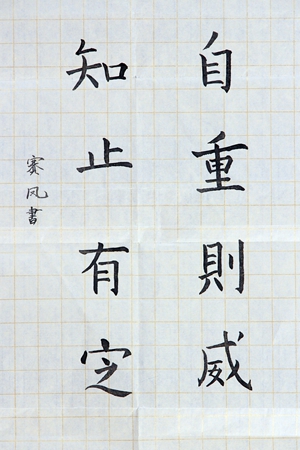 自重則威
知止有定
赛风書